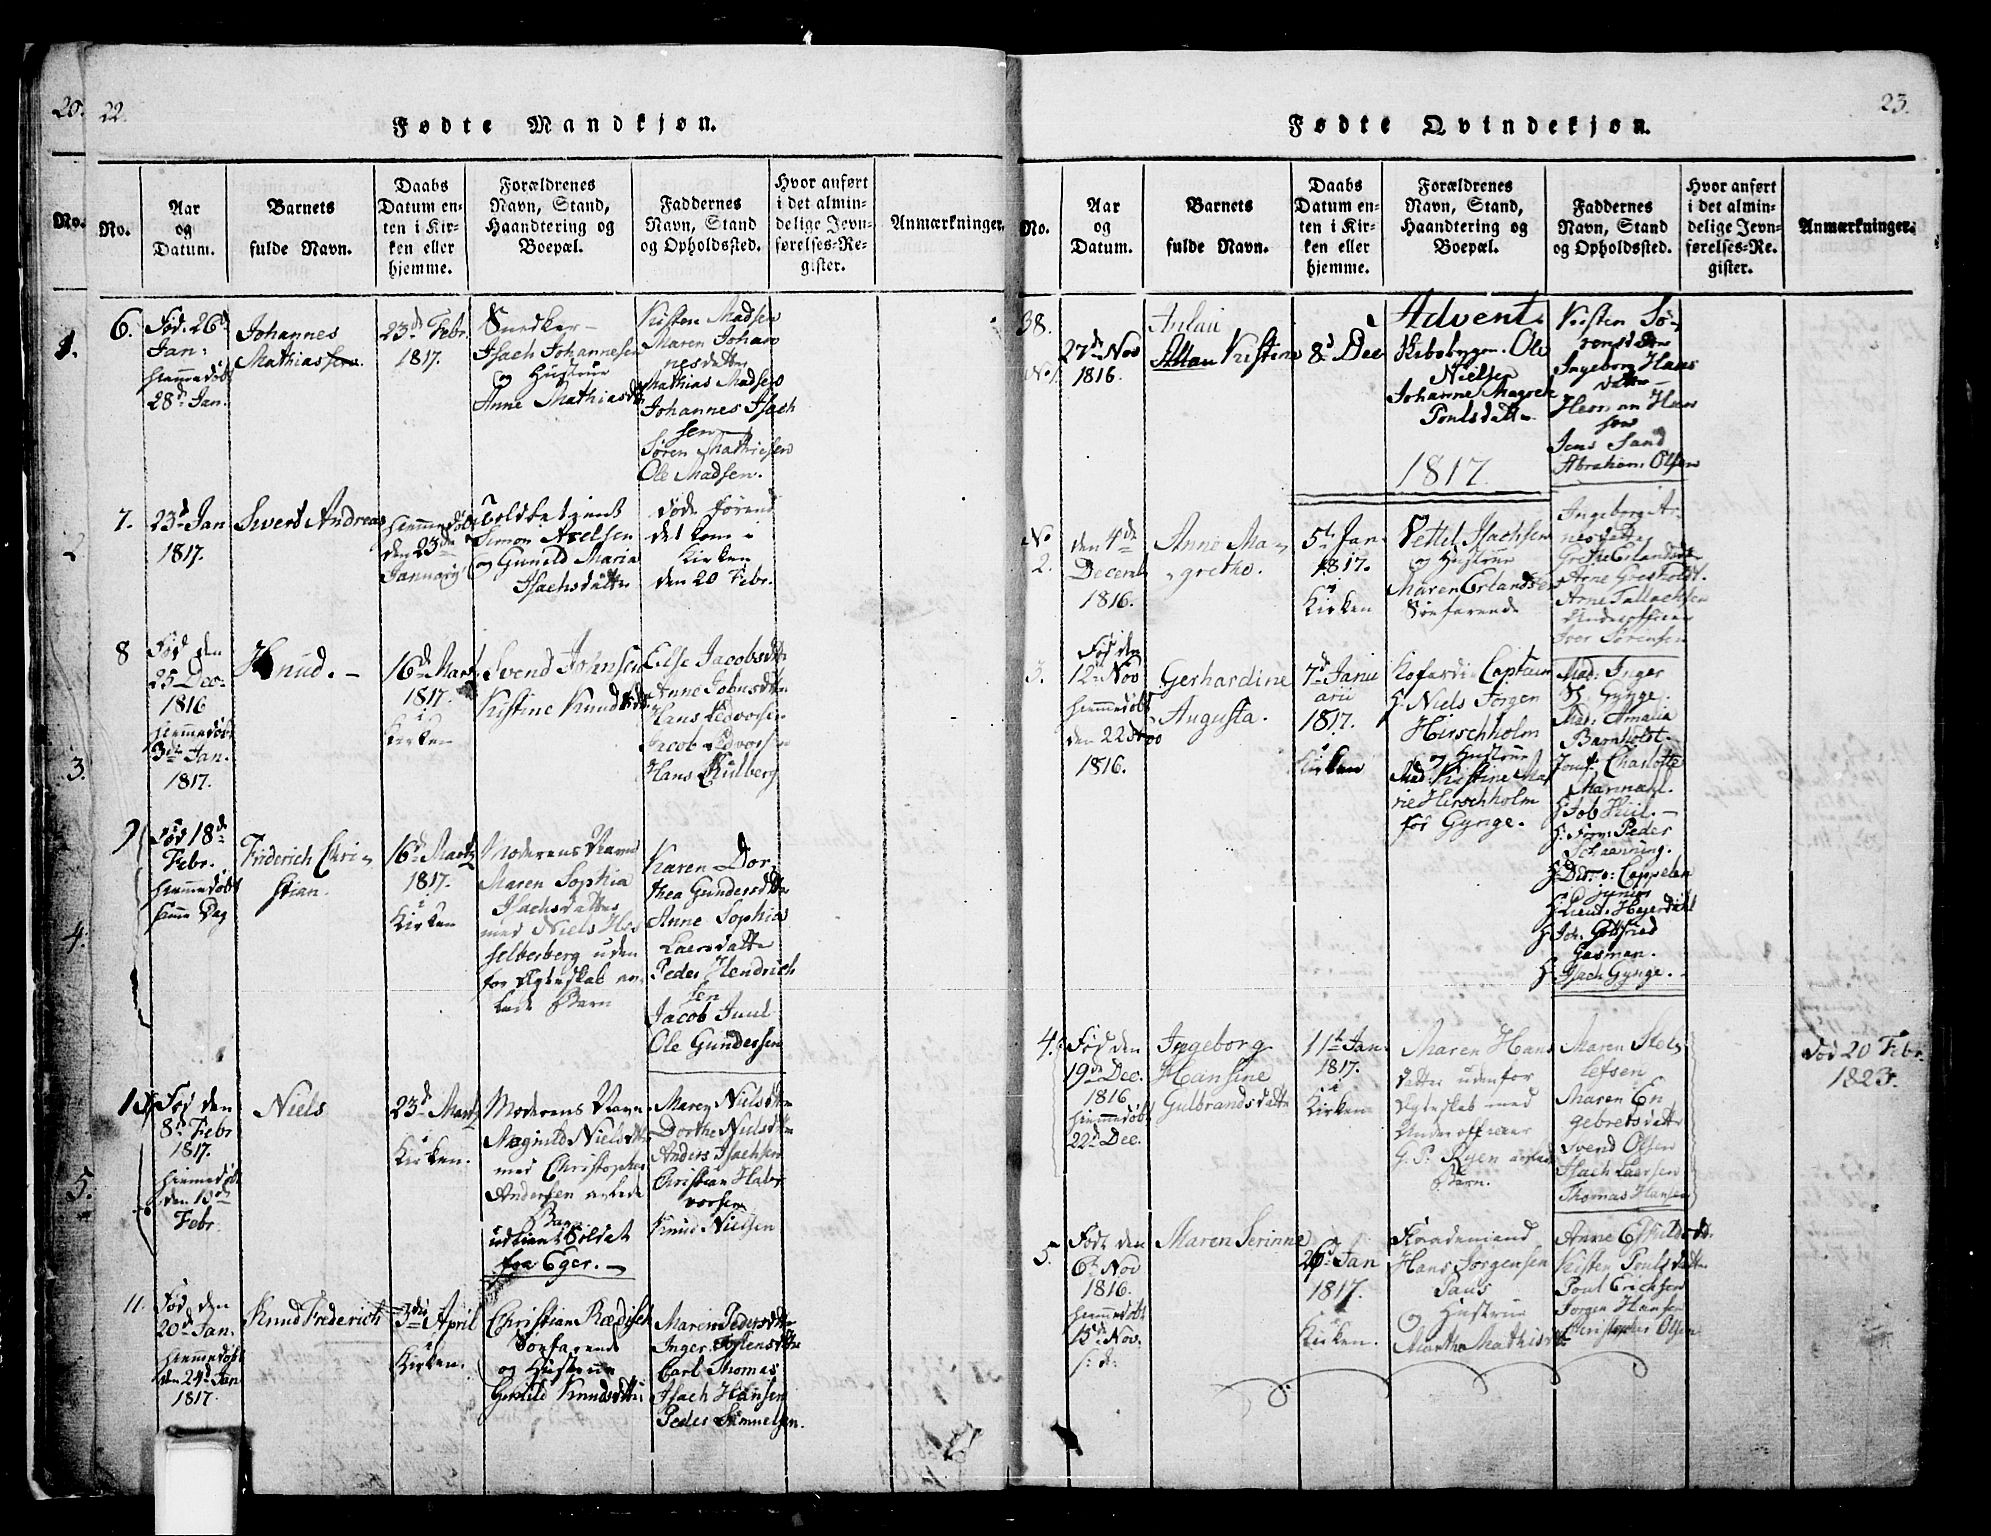 20.
No.
1.
2
3.
4.
5.
22.
Fødte Mandkjøn.
No.
Aar
og
Datum.
Barnets
fulde Navn.
Daabs
Datum en-
ten i Kir-
ken eller
hjemme.
Forældrenes
Navn, Stand,
Haandtering og
Boepæl.
Faddernes
Navn, Stand
og Opholdssted.
Hvor anført
i det almin-
delige Jevn-
førelses-Re-
gister.
Anmærkninger.
6.
Fød. 26d
Jan:
hiemmedøbt
28d Jan.
Johannes
Mathiassen
23d Febr.
1817.
Snedker
Isach Johannesen
og Hustrue
Anne Mathiasdtr
Kisten Madsen
Maren Johan
nesdatter
Mathias Madsen
Johannes Isach
sen
Søren Mathiesen
Ole Madsen.
7.
23d Jan
1817.
Siverd Andreas
hiemmedøbt
den 23de
Januarij
Toldbetjent
Simon Axelsen
og Gunild Maria
Isachsdatter
døde førend
det kom i
Kirken
den 20 Febr.
8
Fød den
25 Dec.
1816
hiemmedøbt
3de Jan.
1817.
Knud. -
16d Marti
1817.
i
Kirken
Svend Johnsen
Kistine Knudsdtr
Else Jacobsdtr
Anne Jobnsdtr
Hans Ledvorsen
Jacob Ledvorsen
Hans Kulberg
9
Fød 18de
Febr.
hiemmedøbt
samme Dag
Friderich Chri-
stian.
16d Marti
1817.
i
Kirken
Moderens Navn
Maren Sophia
Isachsdatter
med Niels Hes
selberberg uden
for Ægteskab av-
lede Barn
Karen Dor-
thea Gundersdtr
Anne Sophie
Laersdatter
Peder Hendrich
sen
Jacob Juul
Ole Gundersen
10
Fød den
8d Febr
1817.
hiemmedøbt
den 10de
Febr.
Niels
23d Marti
i
Kirken.
Moderens Navn
Magnild Nielsdtr
med Christopher
Andersen avlede
Barn
udtient Soldat
fra Eger. -
Maren Nielsdtr
Dorthe Nielsdtr
Anders Isachsen
Christian Halv
vorsen
Knud Nielsen
11.
Fød den
20d Jan.
hiemmedøbt
den 24d Jan
1817.
Knud Frederich
3die April
i
Kirken.
Christian Rædisch
Søefarende
og Hustrue
Gunild Knudsdtr
Maren Pedersdtr
Inger Torstensdtr
Carl Thomas
Isach Hansen
Peder Samuelsen.
23.
Fødte Qvindekjøn.
No.
Aar
og
Datum.
Barnets
fulde Navn.
Daabs
Datum en-
ten i Kir-
ken eller
hjemme.
Forældrenes
Navn, Stand,
Haandtering og
Boepæl.
Faddernes
Navn, Stand
og Opholdssted.
Hvor anført
i det almin-
delige Jevn-
førelses-Re-
gister.
Anmærkninger.
38.
No 1.
27de Nov
1816.
Anlau
Allau Kistine
8d Dec
Advent.
Kibsbygger Ole
Nielsen
Johanne Margreth
Poulsdatter
1817.
Kisten Sø-
rensdatter
Ingeborg Hans
datter
Herman Han
sen
Jens Sand
Abraham Olsen
No
2.
den 4de
Decemb
1816.
Anne Ma-
grethe.
5te Jan
1817.
i
Kirken
Pettel Isachsen
og Hustrue
Maren Erlandsen
Søefarende
Ingeborg Ar-
nesdatter
Grethe Erlandsdtr
Arne Gresholdt.
Arne Tallachsen
Underofficeer
Iver Sørensen
3.
Fød den
12te Nov
hiemmedøbt
den 22de Nov
1816.
Gerhardine
Augusta.
7d Janu
arii
1817.
i
Kirken
Kofardi Captain
H. Niels Jørgen
Hirschholm
og Hustrue
Mad. Kistine Ma
rie Hirschholm
før Gynge.
Mad. Inger
Gynge.
Mad. Amalia
Barnholst.
Jomf. Charlotte
Marmahl.
H. Job Hiil. -
H. Peder
Schanning.
H. Dir. v. Cappelen
junior
H. Lieut. Heyerdahl
H. Joh. Gotfried
Gasman.
H. Isach Gynge. -
4.
Fød den
19de Dec.
1816
hiemmedøbt
22d Dec.
Ingeborg
Hansine
Gulbrandsdatter
11te Jan.
1817.
i
Kirken
Maren Hans
datter udenfor
Ægteskab med
Underofficeer
G. P. Ryen avlede
Barn.
Maren Stels
lefsen
Maren En
gebretsdatter
Svend Olsen
Isach Laersen
Thomas Hansen
Død 20 Febr.
1823.
5.
Født den
6te Nov
1816.
hiemmedøbt
15de Nov.
Maren Serinne
26d Jan
1817.
i
Kirken.
Hans Jørgensen
Paus
og Hustrue
Marthe Mathisdtr
Anne Eskildsdtr.
Kisten Poulsdatter
Poul Ericksen
Jørgen Hansen
Christopher Olsen